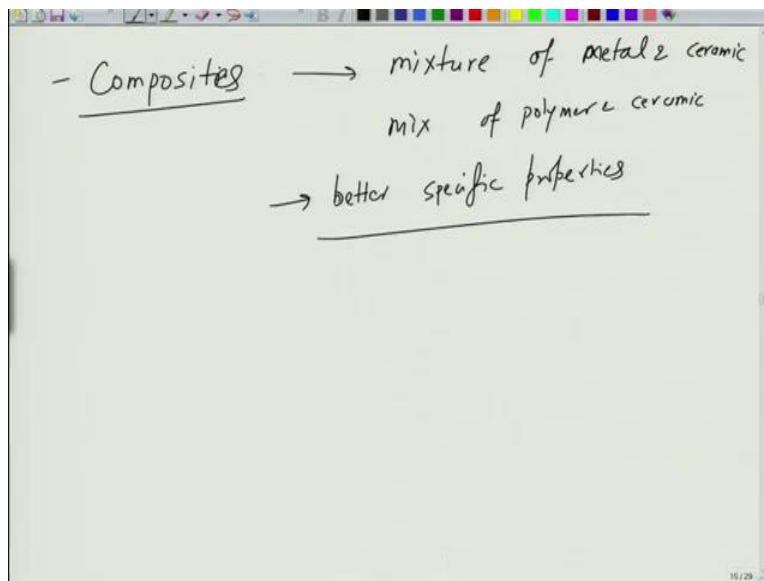 - Composities → mixture of metal & ceramic
mix of polymer & ceramic
→ better specific properties
15/29